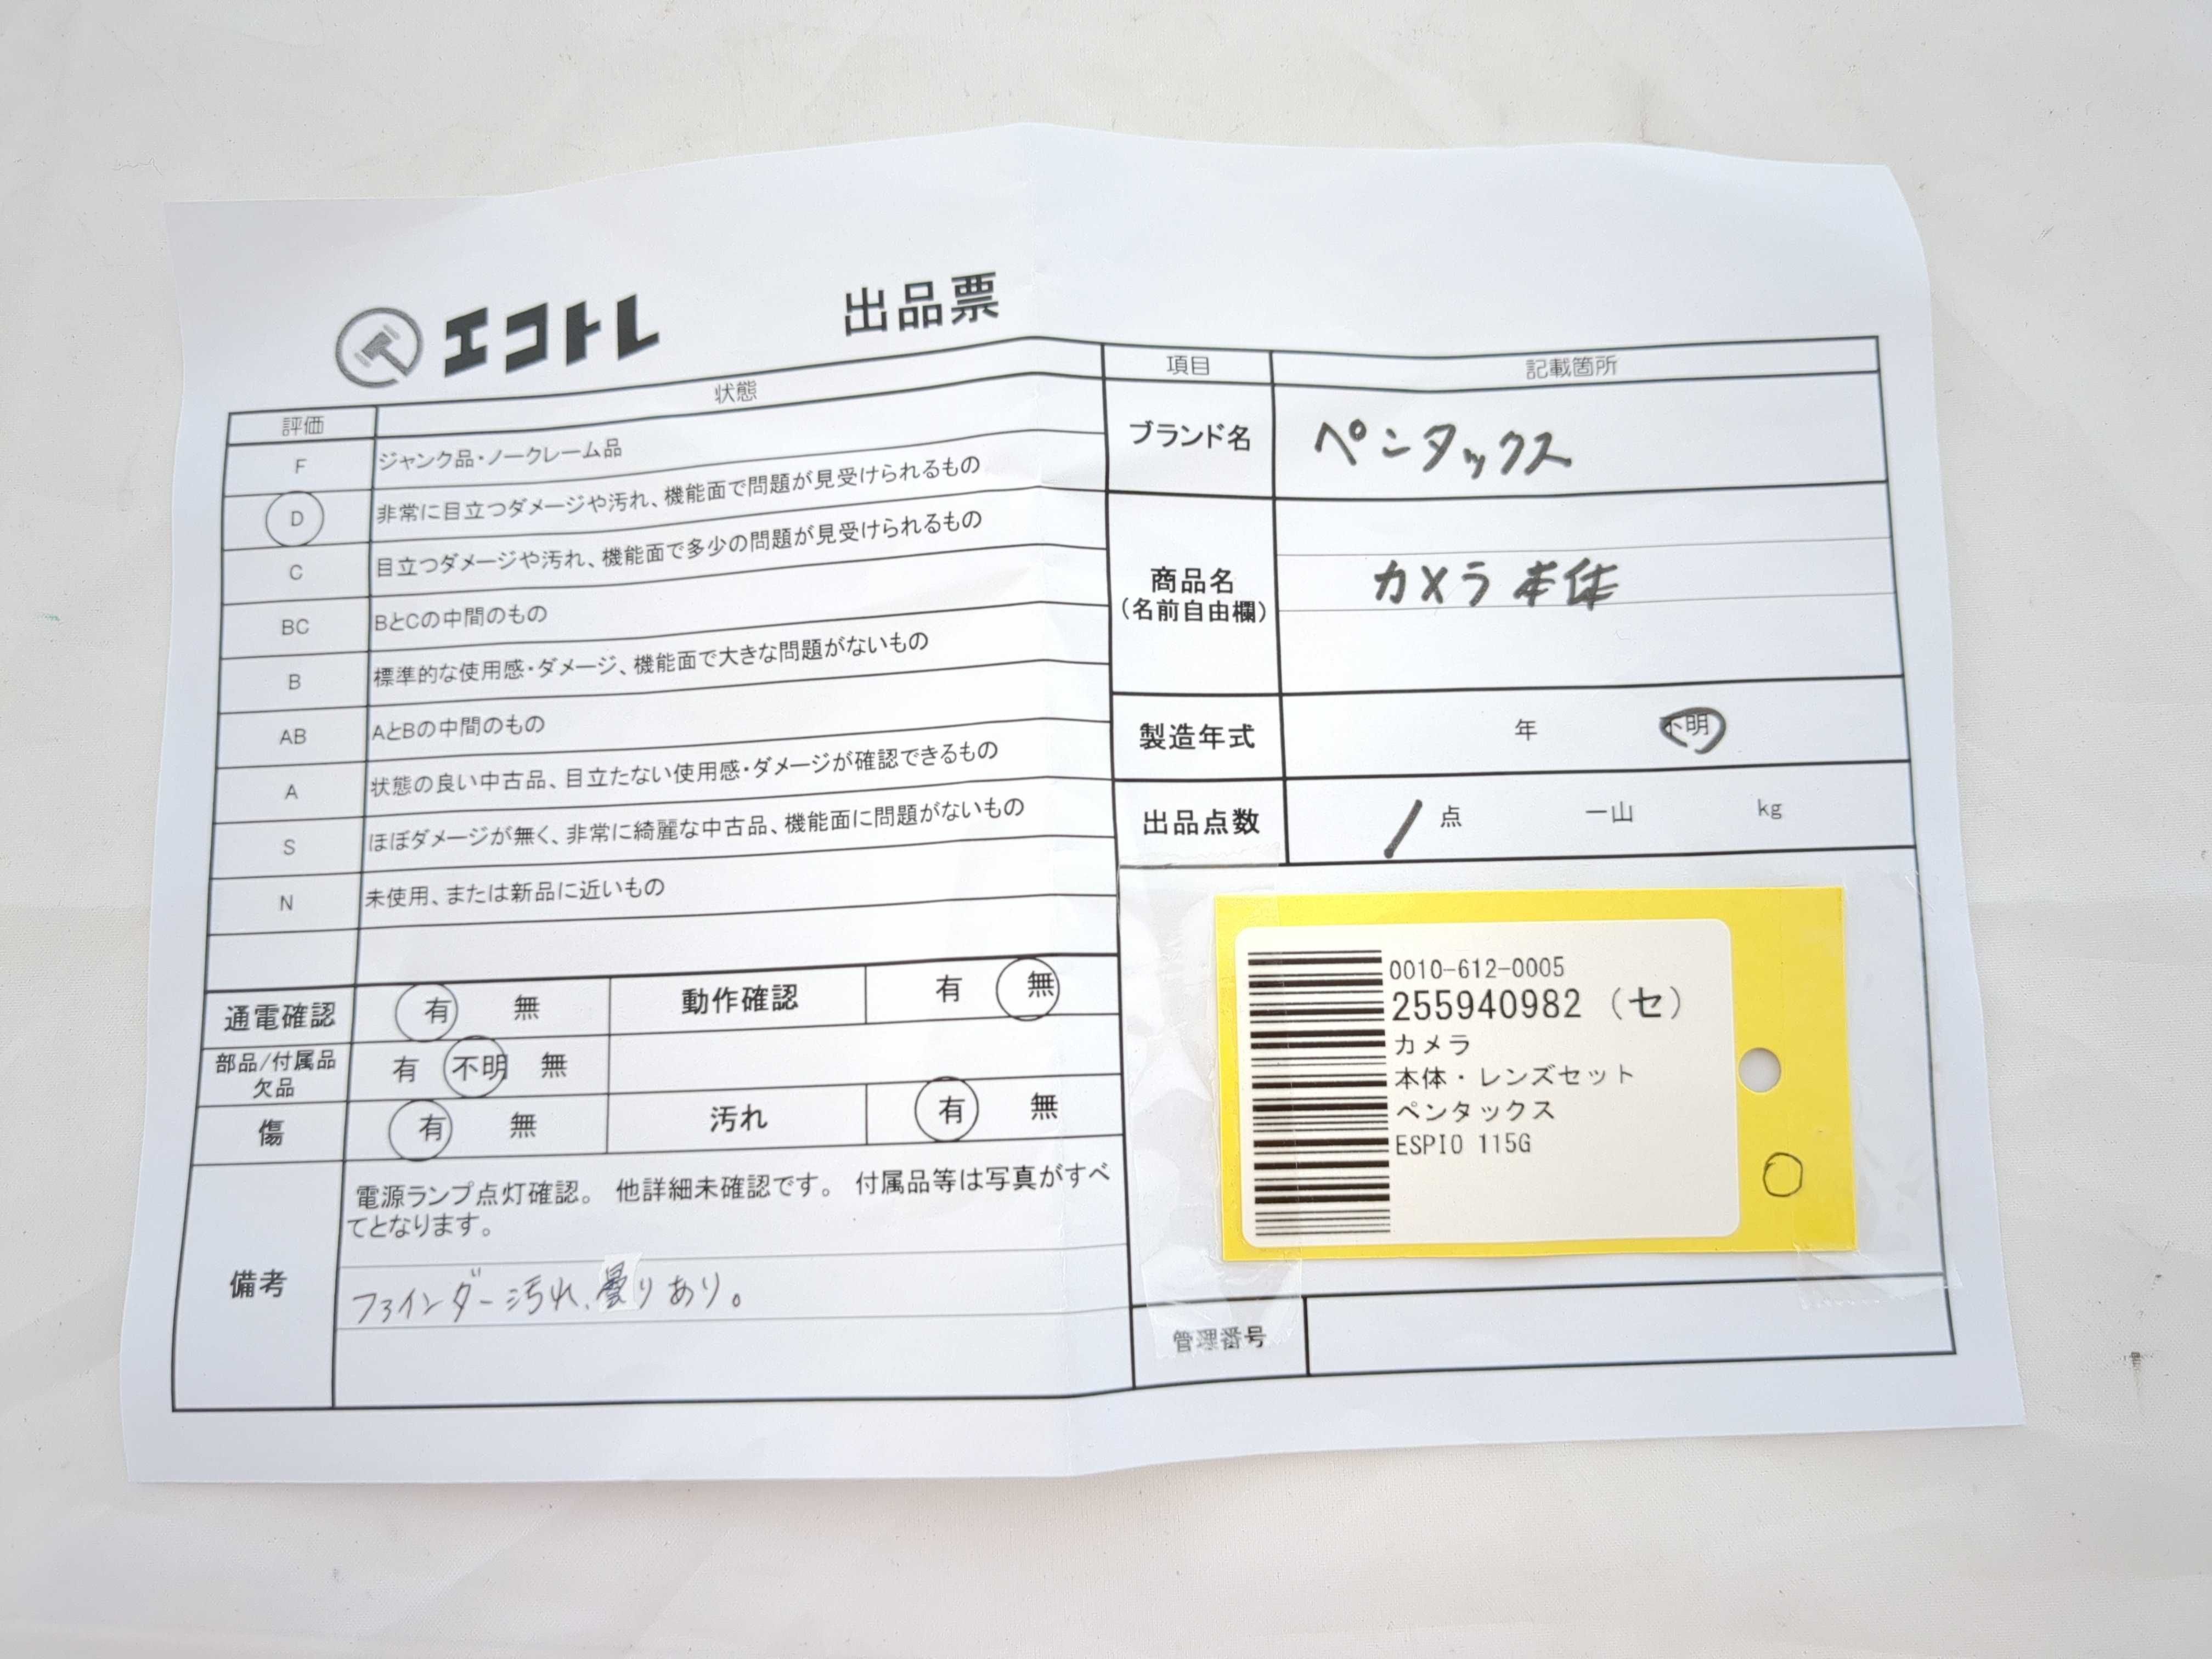 エコトレ 出品票
評価 状態
F ジャンク品・ノークレーム品
D 非常に目立つダメージや汚れ、機能面で問題が見受けられるもの
C 目立つダメージや汚れ、機能面で多少の問題が見受けられるもの
BC BとCの中間のもの
B 標準的な使用感・ダメージ、機能面で大きな問題がないもの
AB AとBの中間のもの
A 状態の良い中古品、目立たない使用感・ダメージが確認できるもの
S ほぼダメージが無く、非常に綺麗な中古品、機能面に問題がないもの
N 未使用、または新品に近いもの
通電確認 有 無 動作確認 有 無
部品/付属品
欠品 有 不明 無
傷 有 無 汚れ 有 無
備考
電源ランプ点灯確認。 他詳細未確認です。 付属品等は写真がすべ
てとなります。
ファインダー汚れ、曇りあり。
項目 記載箇所
ブランド名 ペンタックス
商品名
(名前自由欄)
カメラ本体
製造年式 年 不明
出品点数 1 点 一山 kg
0010-612-0005
255940982 (セ)
カメラ
本体・レンズセット
ペンタックス
ESPIO 115G
管理番号